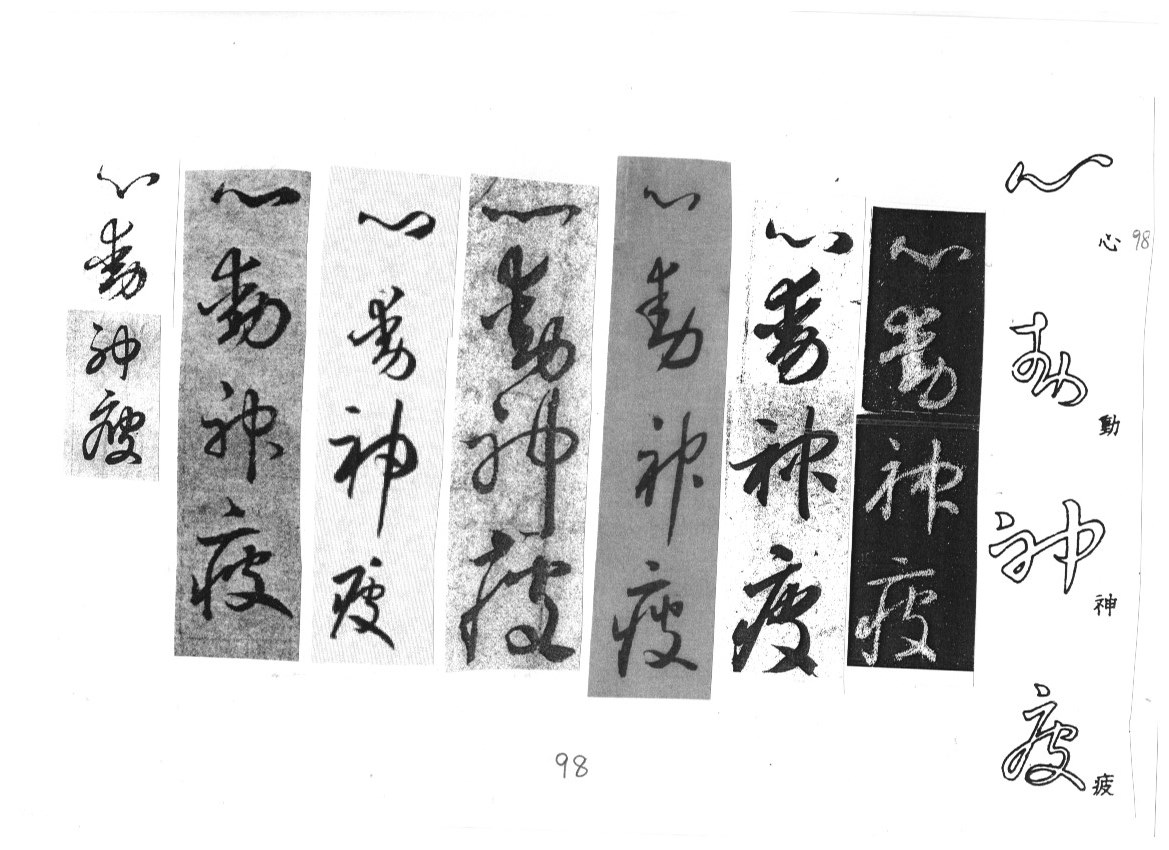 98
心動神疲
心動神疲
心動神疲
心動神疲
心動神疲
心動神疲
心動神疲
心動神疲
心動神疲
98